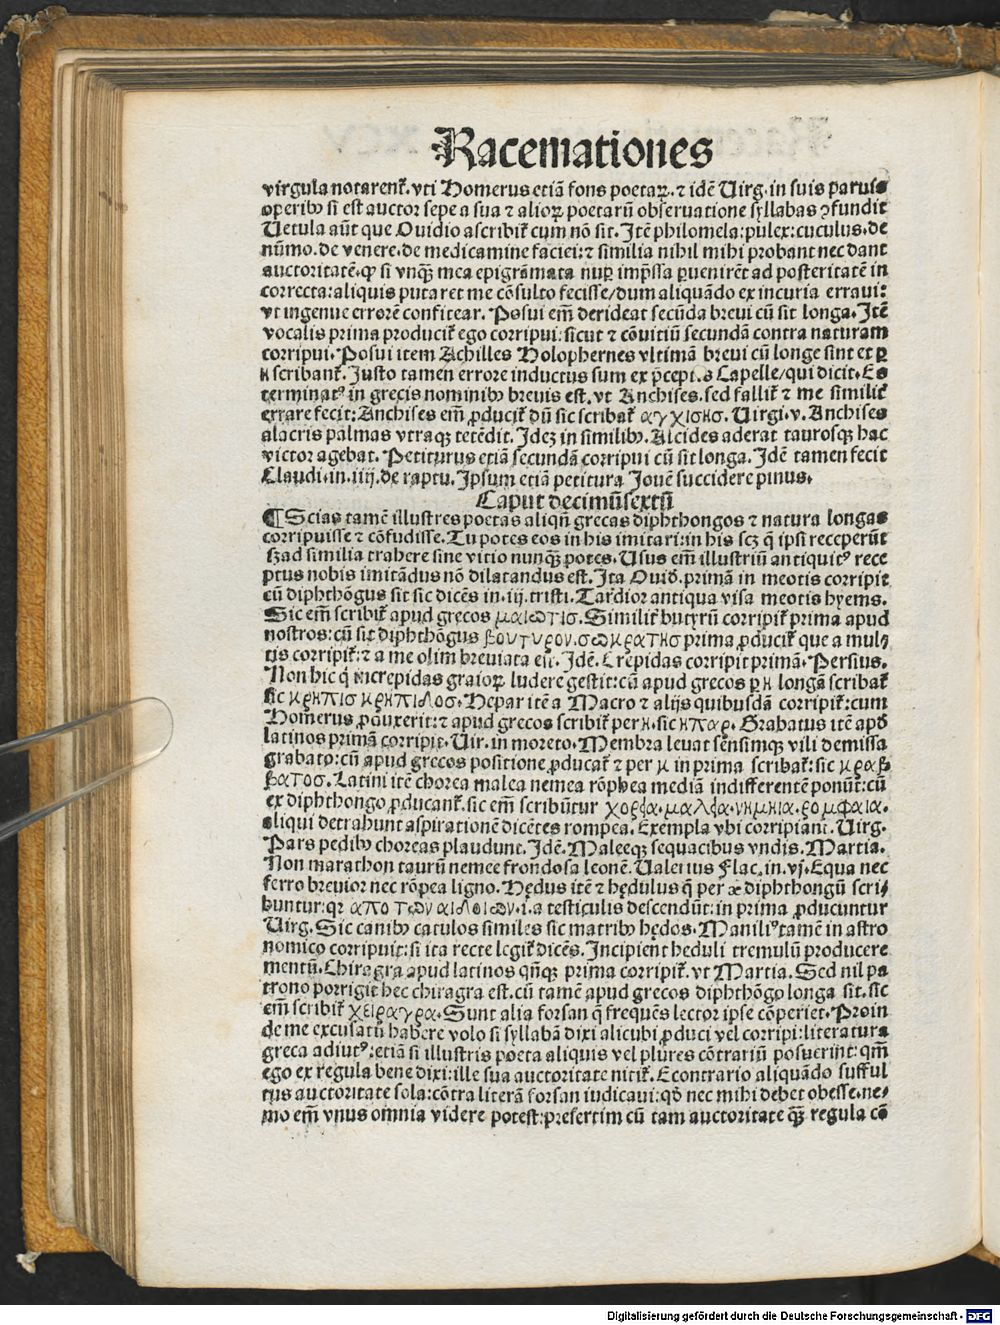 Racemationes
virgula notarent᷑. vti Homerus etiā fons poetaꝝ. ⁊ idē Uirg. in suis paruis
operibꝰ si est auctor sepe a sua ⁊ alioꝝ poetarū obseruatione syllabas ꝯfundit
Uetula aūt que Ouidio ascribit᷑ cum nō sit. Itē philomela: pulex: cuculus. de
nūmo. de venere. de medicamine faciei: ⁊ similia nihil mihi probant nec dant
auctoritatē. ꝙ si vnqꝫ mea epigrāmata nuꝑ imp̄ssa ꝑuenirēt ad posteritatē in
correcta: aliquis putaret me cōsulto fecisse / dum aliquādo ex incuria erraui:
vt ingenue errorē confitear. Posui em̄ derideat secūda breui cū sit longa. Itē
vocalis prima producit᷑ ego corripui: sicut ⁊ cōuitiū secundā contra naturam
corripui. Posui item Achilles Holophernes vltimā breui cū longe sint ex ꝑ
η scribant᷑. Iusto tamen errore inductus sum ex p̄cepi.s Capelle / qui dicit. Es
terminatꝰ in grecis nominibꝰ breuis est. vt Anchises. sed fallit᷑ ⁊ me similit᷑
errare fecit: Anchises em̄ ꝓducit᷑ dū sic scribat᷑ αγχισησ. Uirgi. v. Anchises
alacris palmas vtrasqꝫ tetēdit. Ideꝫ in similibꝰ. Alcides aderat taurosqꝫ hac
victor agebat. Petiturus etiā secundā corripui cū sit longa. Idē tamen fecit
Claudi. in. iiij. de raptu. Ipsum etiā petitura Iouē succidere pinus.
Caput decimūsextū
¶ Scias tamē illustres poetas aliqn̄ grecas diphthongos ⁊ natura longas
corripuisse ⁊ cōfudisse. Tu potes eos in his imitari: in his scꝫ q̄ ipsi receperūt
sꝫ ad similia trahere sine vitio nunqꝫ potes. Usus em̄ illustriū antiquitꝰ rece
ptus nobis imitādus nō dilatandus est. Ita Ouid. primā in meotis corripit
cū diphthōgus sit sic dicēs in. iij. tristi. Tardior antiqua visa meotis hyems.
Sic em̄ scribit᷑ apud grecos μαιωτισ. Similit᷑ butyrū corripit᷑ prima apud
nostros: cū sit diphthōgus βουτυρον. σωκρατησ prima ꝓducit᷑ que a mul⸗
tis corripit᷑: ⁊ a me olim breuiata est. Idē. Crepidas corripit primā. Persius.
Non hic q̇ increpidas graioꝝ ludere gestit: cū apud grecos ꝑ η longā scribat᷑
sic κρηπισ κρηπιδοσ. Hepar itē a Macro ⁊ alijs quibusdā corripit᷑: cum
Homerus ꝓduxerit: ⁊ apud grecos scribit᷑ per η. sic ηπαρ. Grabatus itē apd̄
latinos primā corripit. Uir. in moreto. Membra leuat sensimqꝫ vili demissa
grabato: cū apud grecos positione ꝓducat᷑ ⁊ per κ in prima scribat᷑: sic κραβ
βατοσ. Latini itē chorea malea nemea rōphea mediā indifferentē ponūt: cū
ex diphthongo ꝓducant᷑. sic em̄ scribūtur χορεα. μαλεα. νημηια. ρομφαια.
aliqui detrahunt aspirationē dicētes rompea. Exempla vbi corripiant᷑. Uirg.
Pars pedibꝰ choreas plaudunt. Idē. Maleeqꝫ sequacibus vndis. Martia.
Non marathon taurū nemee frondosa leonē. Ualerius Flac. in. vj. Equa nec
ferro breuior nec rōpea ligno. Hędus itē ⁊ hędulus q̄ per æ diphthongū scri⸗
buntur: qꝛ απο των αιδοιων. i. a testiculis descendūt: in prima ꝓducuntur
Uirg. Sic canibꝰ catulos similes sic matribꝰ hędos. Maniliꝰ tamē in astro
nomico corripuit: si ita recte legit᷑ dicēs. Incipient heduli tremulū producere
mentū. Chiragra apud latinos qn̄qꝫ prima corripit᷑. vt Martia. Sed nil pa
trono porrigit hec chiragra est. cū tamē apud grecos diphthōgo longa sit. sic
em̄ scribit᷑ χειραγρα. Sunt alia forsan q̄ frequēs lector ipse cōperiet. Proin
de me excusatū habere volo si syllabā dixi alicubi ꝓduci vel corripi: literatura
greca adiutꝰ: etiā si illustris poeta aliquis vel plures cōtrariū posuerint: qm̄
ego ex regula bene dixi: ille sua auctoritate nitit᷑. Econtrario aliquādo suffful
tus auctoritate sola: cōtra literā forsan iudicaui: qd̄ nec mihi debet obesse. ne⸗
mo em̄ vnus omnia videre potest: presertim cū tam auctoritate qꝫ regula cō